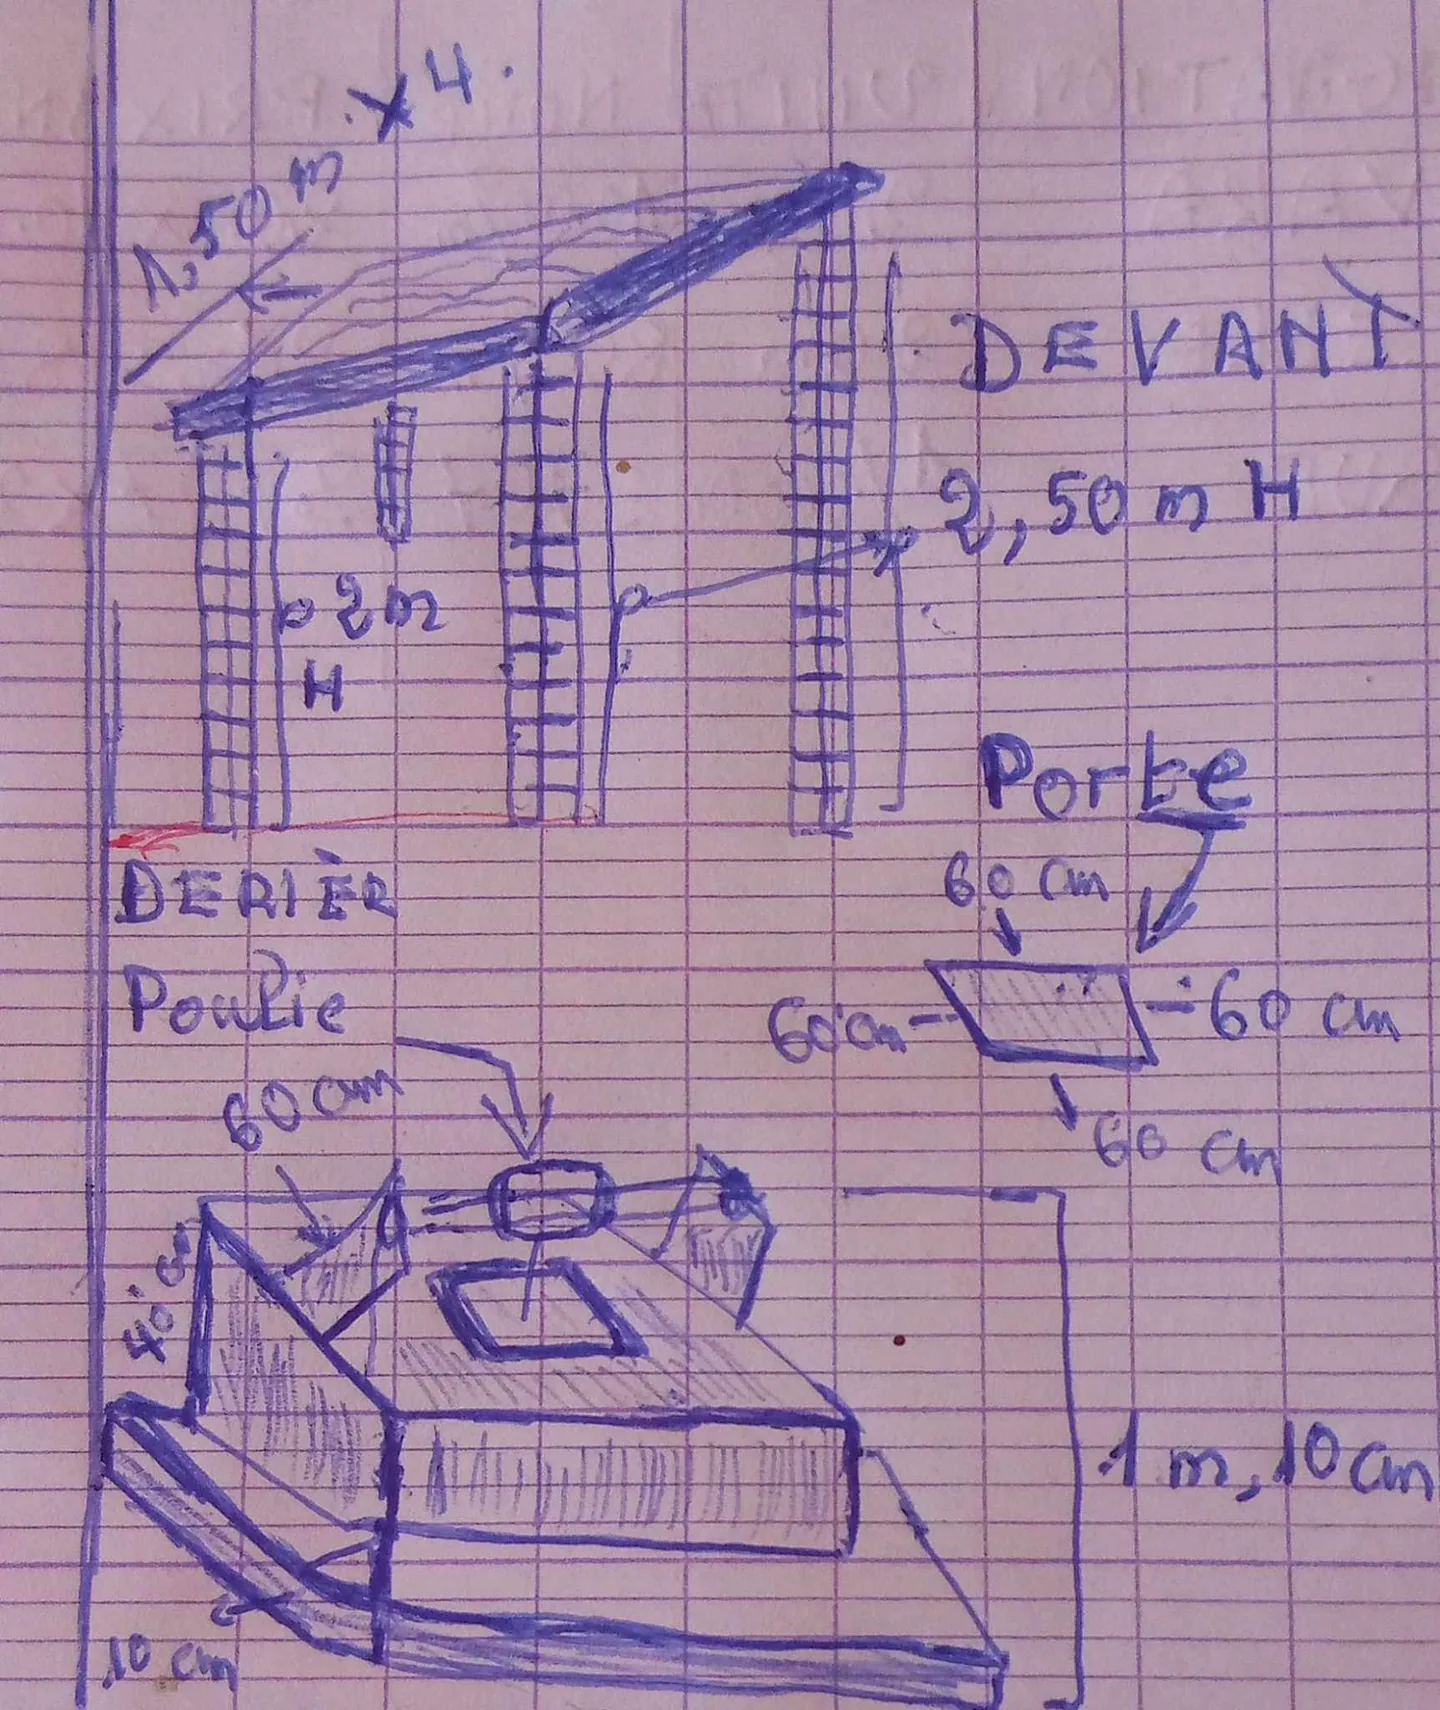 1,50 m × 4.
DEVANT
2,50 m H
2m
H
Porte
60 cm
DERIÈR
Poulie
60 cm
60 cm
60 cm
60 cm
40 cm
1 m, 10 cm
10 cm